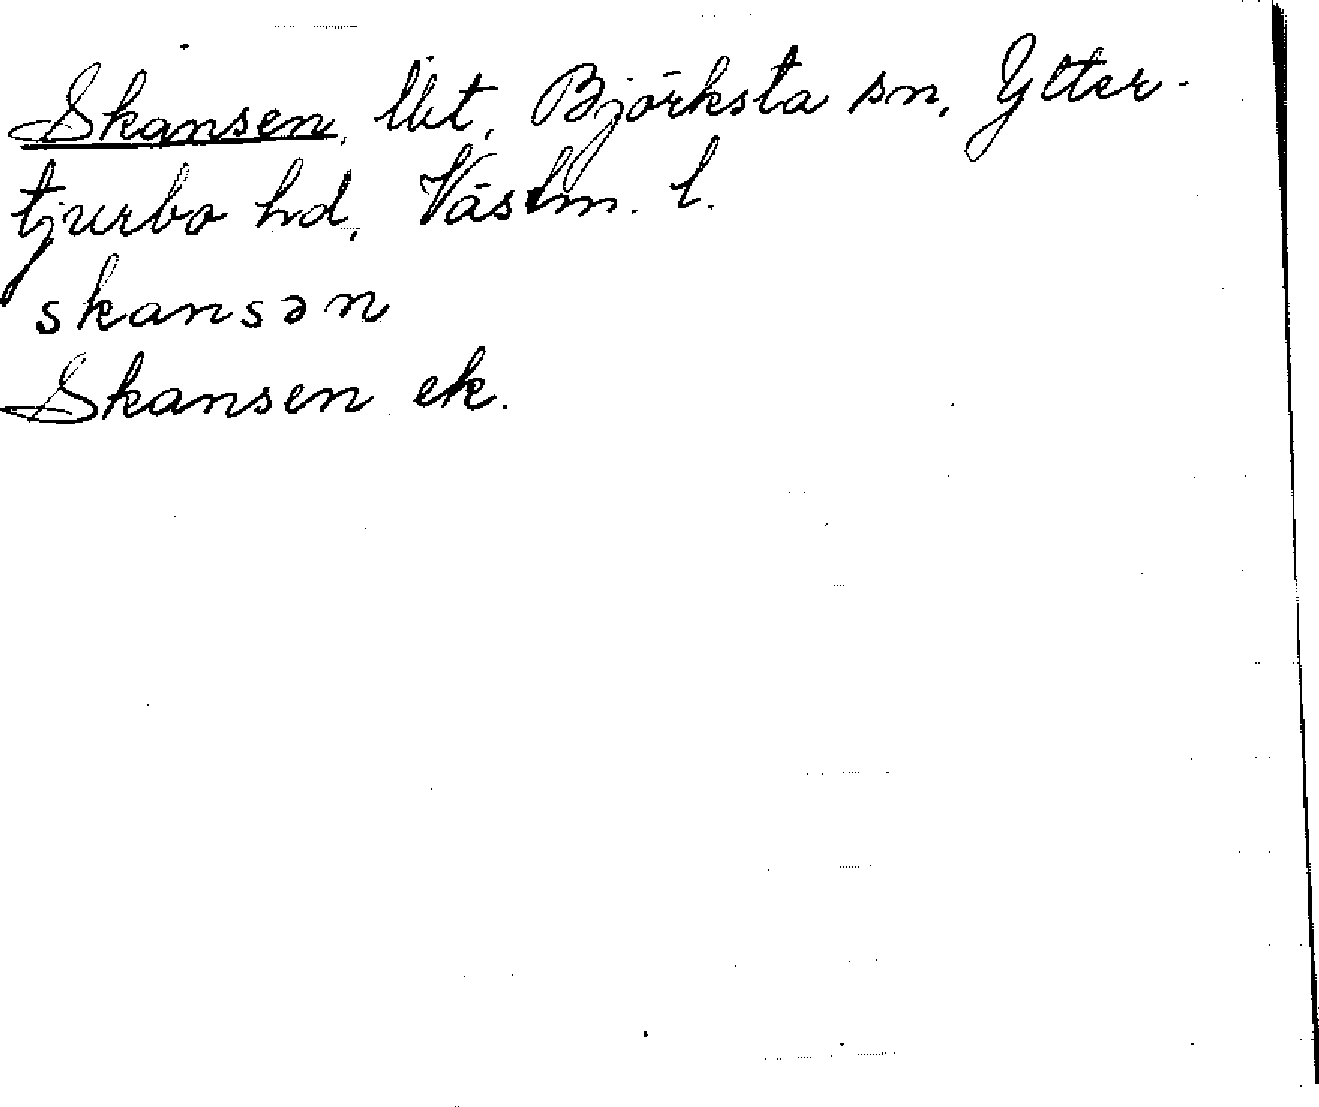 Skansen, lht, Björksta sn, Ytter-
tjurbo hd, Västm. l.
skansən
Skansen ek.